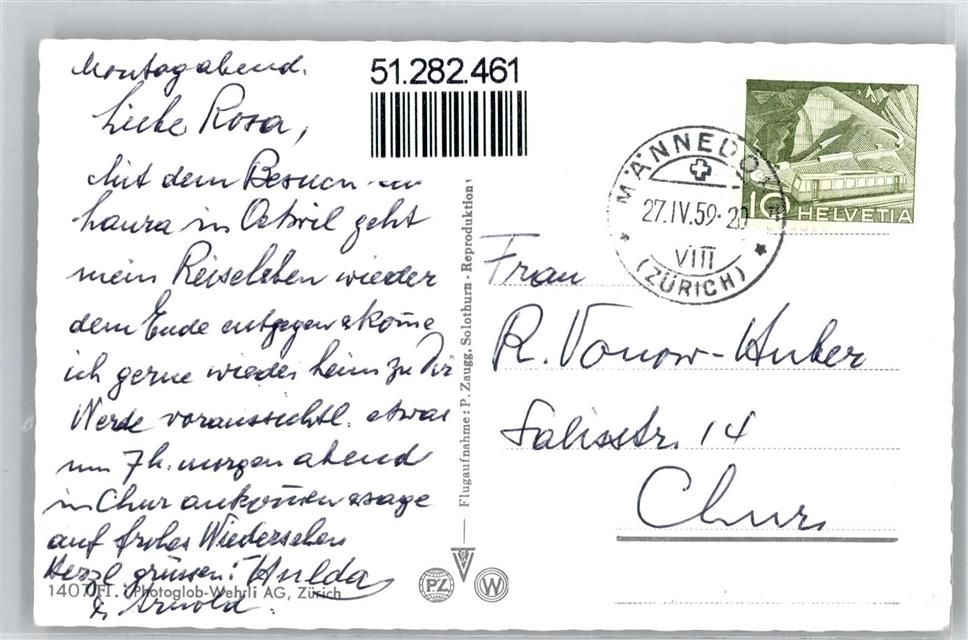 Montagabend.
Liebe Rosa,
Mit dem Besuch
in Oetwil geht
mein Reiseleben wieder
dem Ende entgegen & kome
ich gerne wieder heim zu Dir
Werde voraussichtl. etwas
um 7h. morgen abend
in Chur ankomen & sage
auf frohes Wiedersehen
Herzl grüssen: Hulda
& Arnold.
1407 FI. Photoglob-Wehrli AG, Zürich
51.282.461
Flugaufnahme: P. Zaugg, Solothurn - Reproduktion
PZ
W
MÄNNEDO
27.IV.59-20
VIII
(ZÜRICH)
10 HELVETIA
Frau
R. Vonow-Huber
Salisstr. 14
Chur.